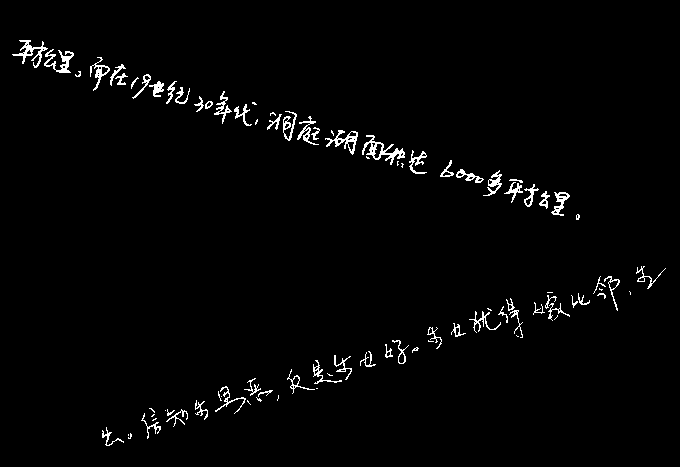 平方公里。而在19世纪30年代，洞庭湖面积达6000多平方公里。
出。信知生男恶，反是生女好。生女犹得嫁比邻，生